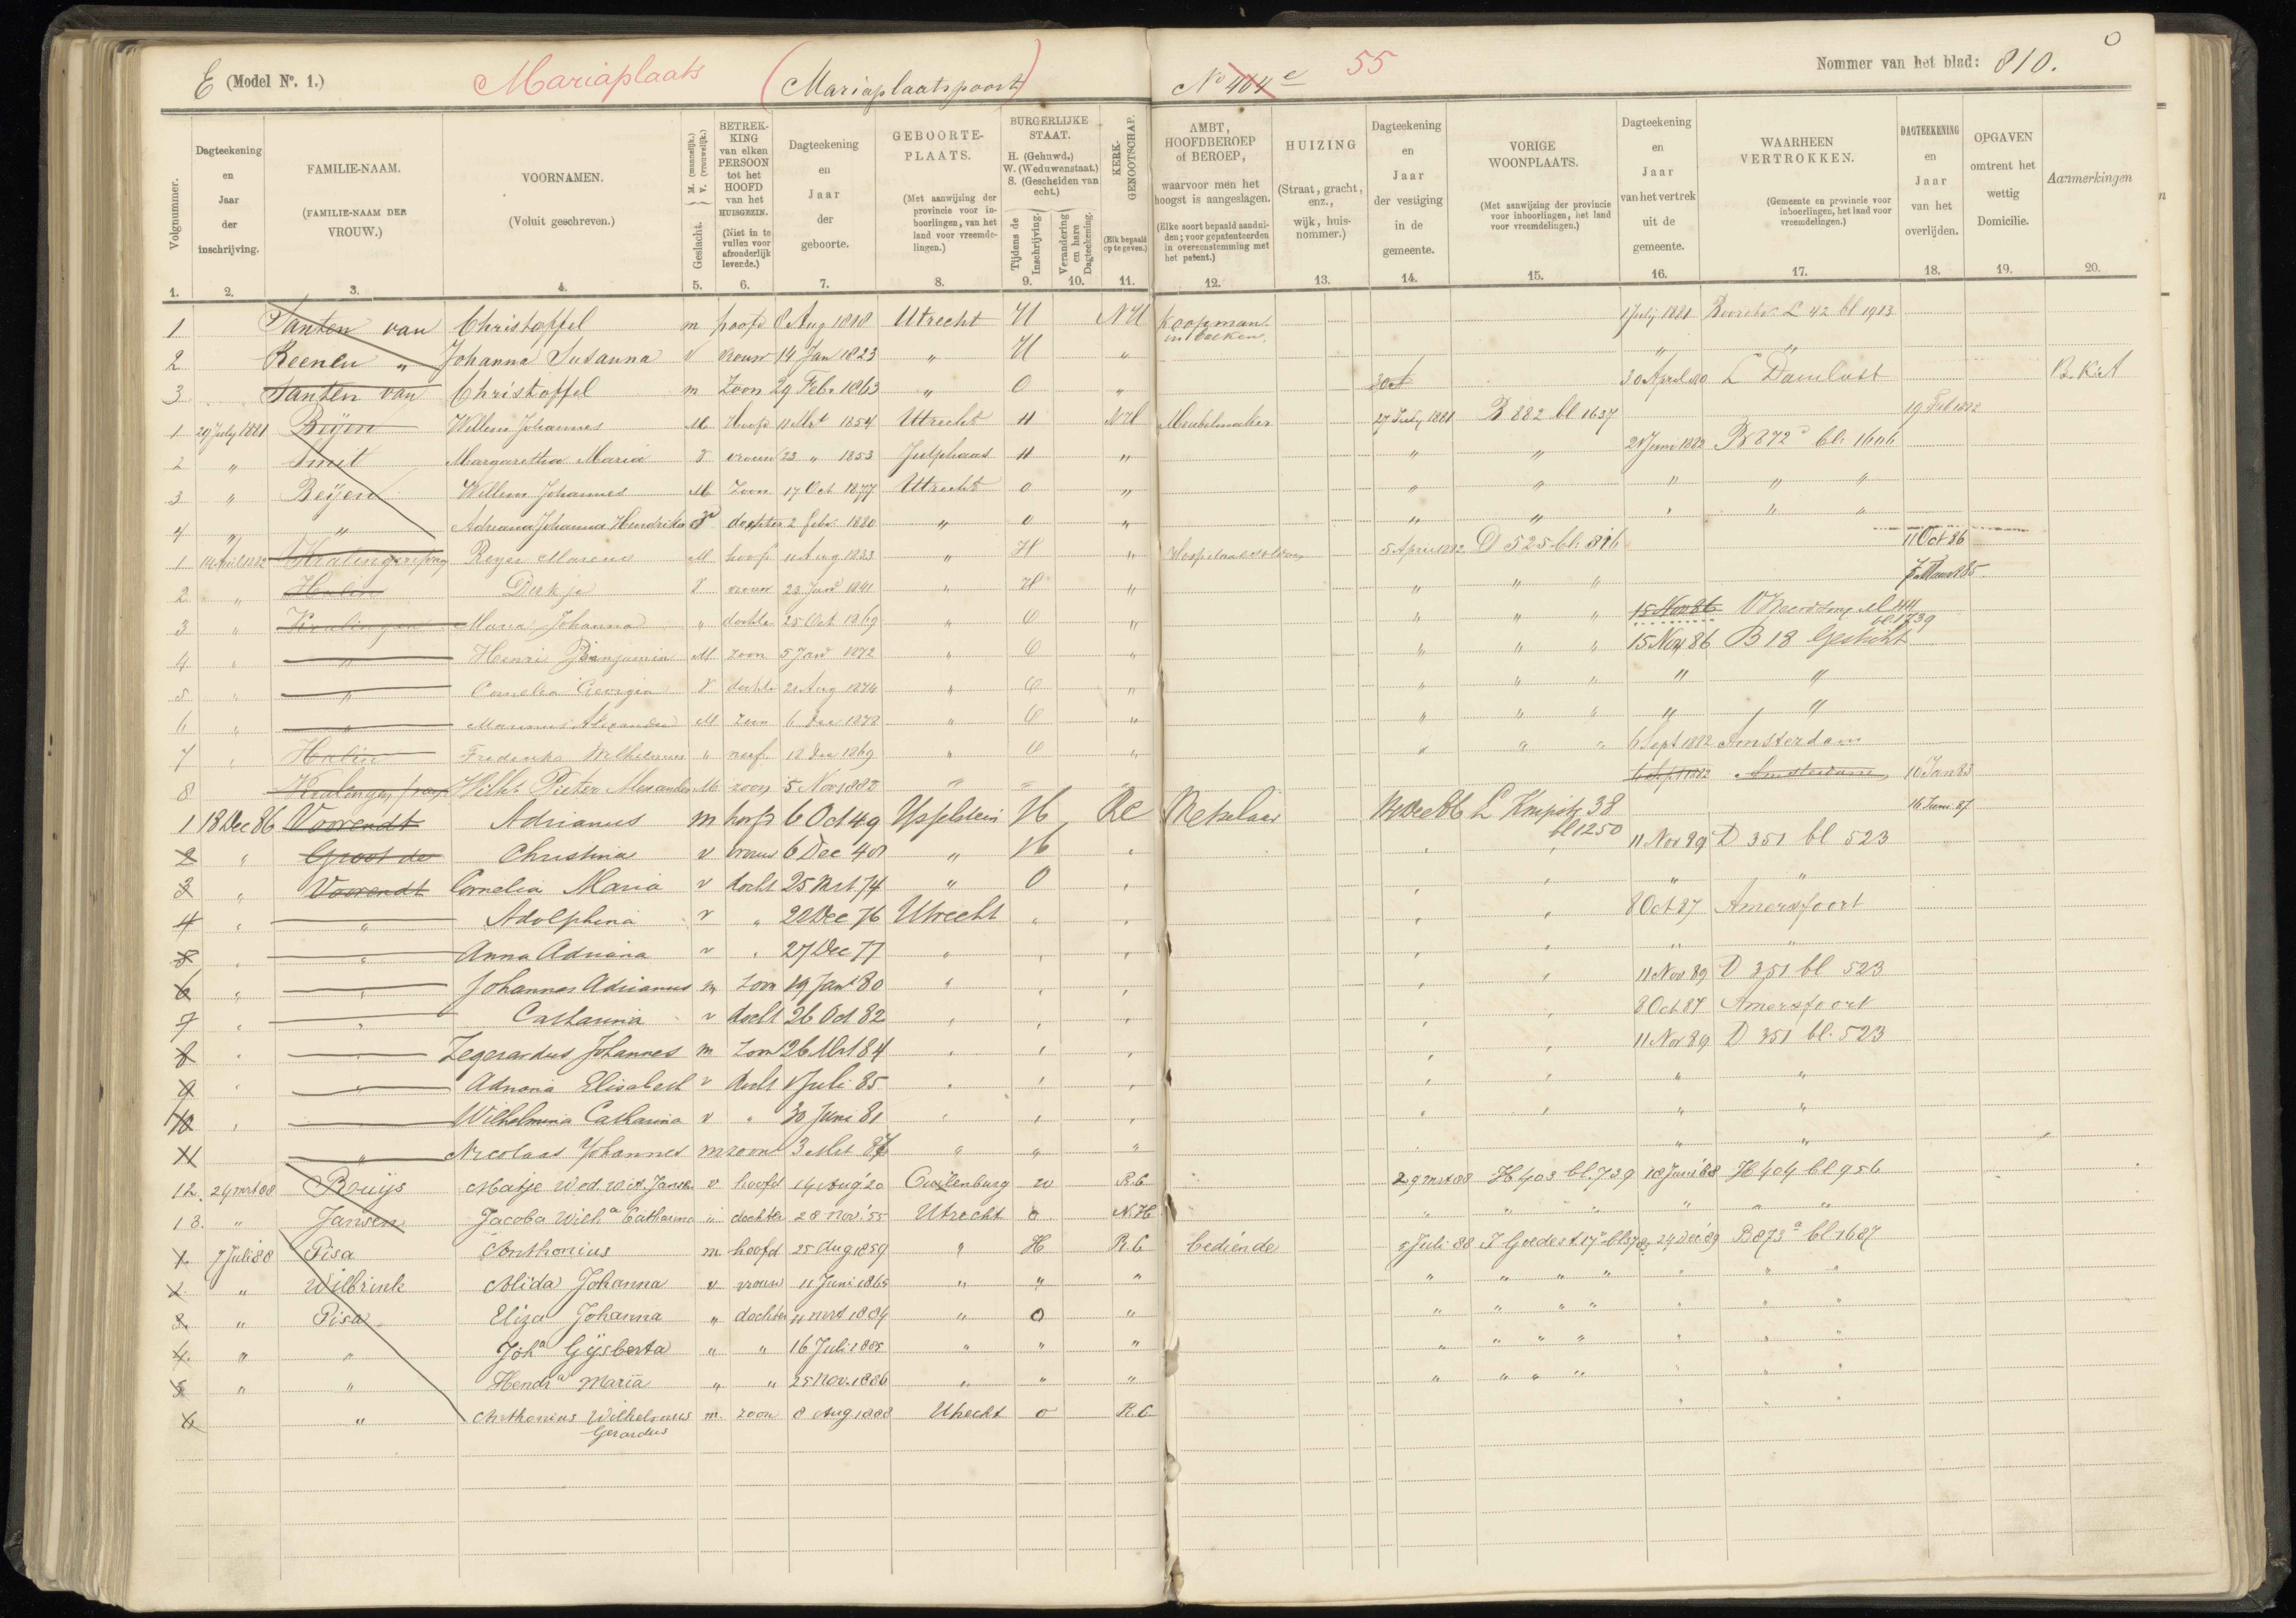 E (Model No. 1.) Mariaplaats (Mariaplaatspoort) No 404 e 55 Nommer van het blad: 810. 0
Volgnummer. 1.
Dagteekening en Jaar der inschrijving. 2.
FAMILIE-NAAM. (FAMILIE-NAAM DER VROUW.) 3.
VOORNAMEN. (Voluit geschreven.) 4.
Geslacht. M. (mannelijk.) V. (vrouwelijk.) 5.
BETREKKING van elken PERSOON tot het HOOFD van het HUISGEZIN. (Niet in te vullen voor afzonderlijk levende.) 6.
Dagteekening en Jaar der geboorte. 7.
GEBOORTE-PLAATS. (Met aanwijzing der provincie voor inboorlingen, van het land voor vreemdelingen.) 8.
BURGERLIJKE STAAT. H. (Gehuwd.) W. (Weduwenstaat.) S. (Gescheiden van echt.) Tijdens de Inschrijving. 9. Verandering en hare Dagteekening. 10.
KERK-GENOOTSCHAP. (Elk bepaald op te geven.) 11.
AMBT, HOOFDBEROEP of BEROEP, waarvoor men het hoogst is aangeslagen. (Elke soort bepaald aanduiden; voor gepatenteerden in overeenstemming met het patent.) 12.
HUIZING (Straat, gracht, enz., wijk, huisnommer.) 13.
Dagteekening en Jaar der vestiging in de gemeente. 14.
VORIGE WOONPLAATS. (Met aanwijzing der provincie voor inboorlingen, het land voor vreemdelingen.) 15.
Dagteekening en Jaar van het vertrek uit de gemeente. 16.
WAARHEEN VERTROKKEN. (Gemeente en provincie voor inboorlingen, het land voor vreemdelingen.) 17.
DAGTEEKENING en Jaar van het overlijden. 18.
OPGAVEN omtrent het wettig Domicilie. 19.
Aanmerkingen 20.
1 Santen van Christoffel m hoofd 8 Aug 1818 Utrecht H NH Koopman in boeken. 1 July 1881 L 42 bl 1913
2 Reenen " Johanna Susanna v vrouw 14 Jan 1823 " H " " "
3 Santen van Christoffel m Zoon 29 Feb. 1863 " O " 30 A 30 April 80 L Damlust
1 29 July 1881 Beijen Willem Johannes M Hoofd 11 Mrt 1854 Utrecht H NH Meubelmaker 27 July 1881 B 882 bl 1637 19 Feb 1882
2 " Smit Margaretha Maria V vrouw 23 " 1853 Jutphaas H " " " 28 Juni 1882 B 872 bl. 1606
3 " Beijen Willem Johannes M Zoon 17 Oct 1877 Utrecht O " " " " " "
4 " " Adriana Johanna Hendrika V dochter 2 febr. 1880 " O " " " " " "
1 10 April 1882 Kralingen Reyer Marcus M hoofd 11 Aug 1833 " H " 5 April 1882 D 525 bl. 816 11 Oct 86
2 " Halin Dirkje V vrouw 23 Jan 1841 " H " " " "
3 " Kralingen Maria Johanna " dochter 25 Oct 1869 " O " " " " 15 Nov 86 bl. 1739
4 " " Henri Benjamin M zoon 5 Jan 1872 " O " " " " 15 Nov 86 B 18 Gesticht
5 " " Cornelia Georgia V dochter 21 Aug 1874 " O " " " " " "
6 " " Marinus Alexander M zoon 6 Dec 1878 " O " " " " " "
7 " Halin Frederika Wilhelmina " 12 Dec 1869 " O " " " " 6 Sept 1882 Amsterdam
8 Kralingen Willh. Pieter Alexander M zoon 5 Nov 1882 " " " 6 Sept 1882 Amsterdam 10 Jan 83
1 18 Dec 86 Voorendt Adrianus m hoofd 6 Oct 49 Ysselstein H RC Metselaar 14 Dec 86 L Knipstr 38 bl 1250 16 Juni 87
2 " Groot de Christina v vrouw 6 Dec 48 " H " " " 11 Nov 89 D 351 bl 523
3 " Voorendt Cornelia Maria v docht 25 Mrt 74 " O " " " " "
4 " " Adolphina v " 22 Dec 76 Utrecht " " " " 8 Oct 87 Amersfoort
5 " " Anna Adriana v " 27 Dec 77 " " " " " " "
6 " " Johannes Adrianus m zoon 19 Jan 80 " " " " " 11 Nov 89 D 351 bl 523
7 " " Catharina v docht 26 Oct 82 " " " " " 8 Oct 87 Amersfoort
8 " " Zegerardus Johannes m zoon 26 Mrt 84 " " " " " 11 Nov 89 D 351 bl. 523
9 " " Adriana Elisabeth v docht 1 Juli 85 " " " " " " "
10 " " Wilhelmina Catharina v " 30 Juni 81 " " " " " " "
11 " Nicolaas Johannes m zoon 3 Mrt 87 " " " " " "
12. 24 mrt 88 Bruijs Matje Wed. v. A. Jansen v hoofd 14 Aug '20 Cuilenburg w R.C. 29 mrt 88 H 403 bl. 739 18 Juni '88 H 404 bl 956
13. " Jansen Jacoba Wilh.a Catharina " dochter 28 Nov. '55 Utrecht o N.H. " " " " " " "
1. 7 Juli 88 Pisa Anthonius m hoofd 25 Aug 1859 " H R.C. bediende 5 Juli 88 24 Dec '89 B 873 a bl 1687
2. " Wilbrink Alida Johanna v vrouw 11 Juni 1865 " " " " " " " " " "
3. " Pisa Eliza Johanna " dochter 11 mrt 1884 " O " " " " " " " "
4. " " Joh.a Gijsberta " " 16 Juli 1885 " " " " " " " " " "
5. " " Hendr.a Maria " " 25 Nov. 1886 " " " " " " " " " "
6. " Anthonius Wilhelmus Gerardus m. zoon 8 Aug 1888 Utrecht o R.C. " "